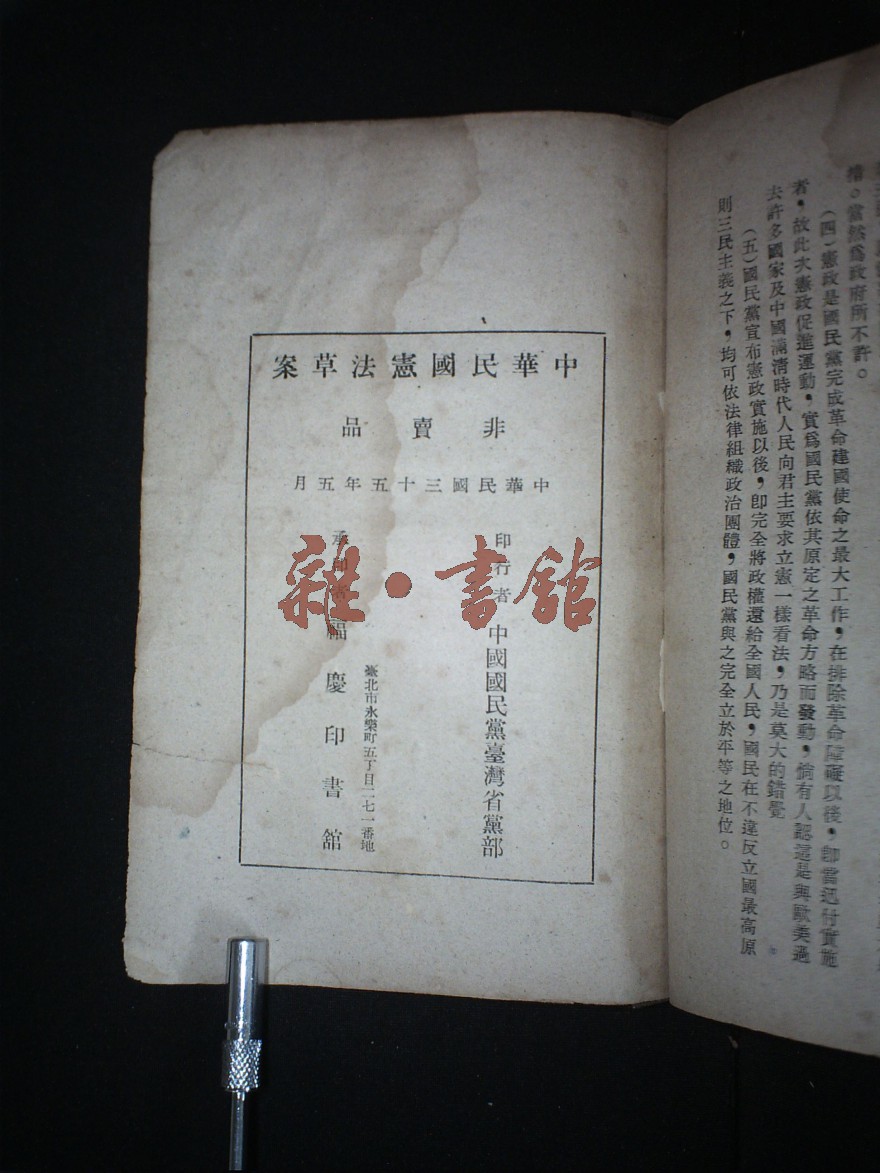 措。當然爲政府所不許。
(四)憲政是國民黨完成革命建國使命之最大工作,在排除革命障礙以後,卽當迅付實施
者,故此次憲政促進運動,實爲國民黨依其原定之革命方略而發動,倘有人認這是與歐美過
去許多國家及中國滿清時代人民向君主要求立憲一樣看法,乃是莫大的錯覺
(五)國民黨宣布憲政實施以後,卽完全將政權還給全國人民,國民在不違反立國最高原
則三民主義之下,均可依法律組織政治團體,國民黨與之完全立於平等之地位。
中華民國憲法草案
非賣品
中華民國三十五年五月
印行者 中國國民黨臺灣省黨部
臺北市永樂町五丁目二七一番地
承印者 福慶印書館
雜・書館